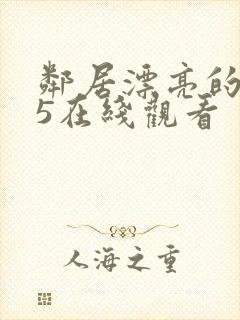 鄰居漂亮的
5在綫觀看
人海之重